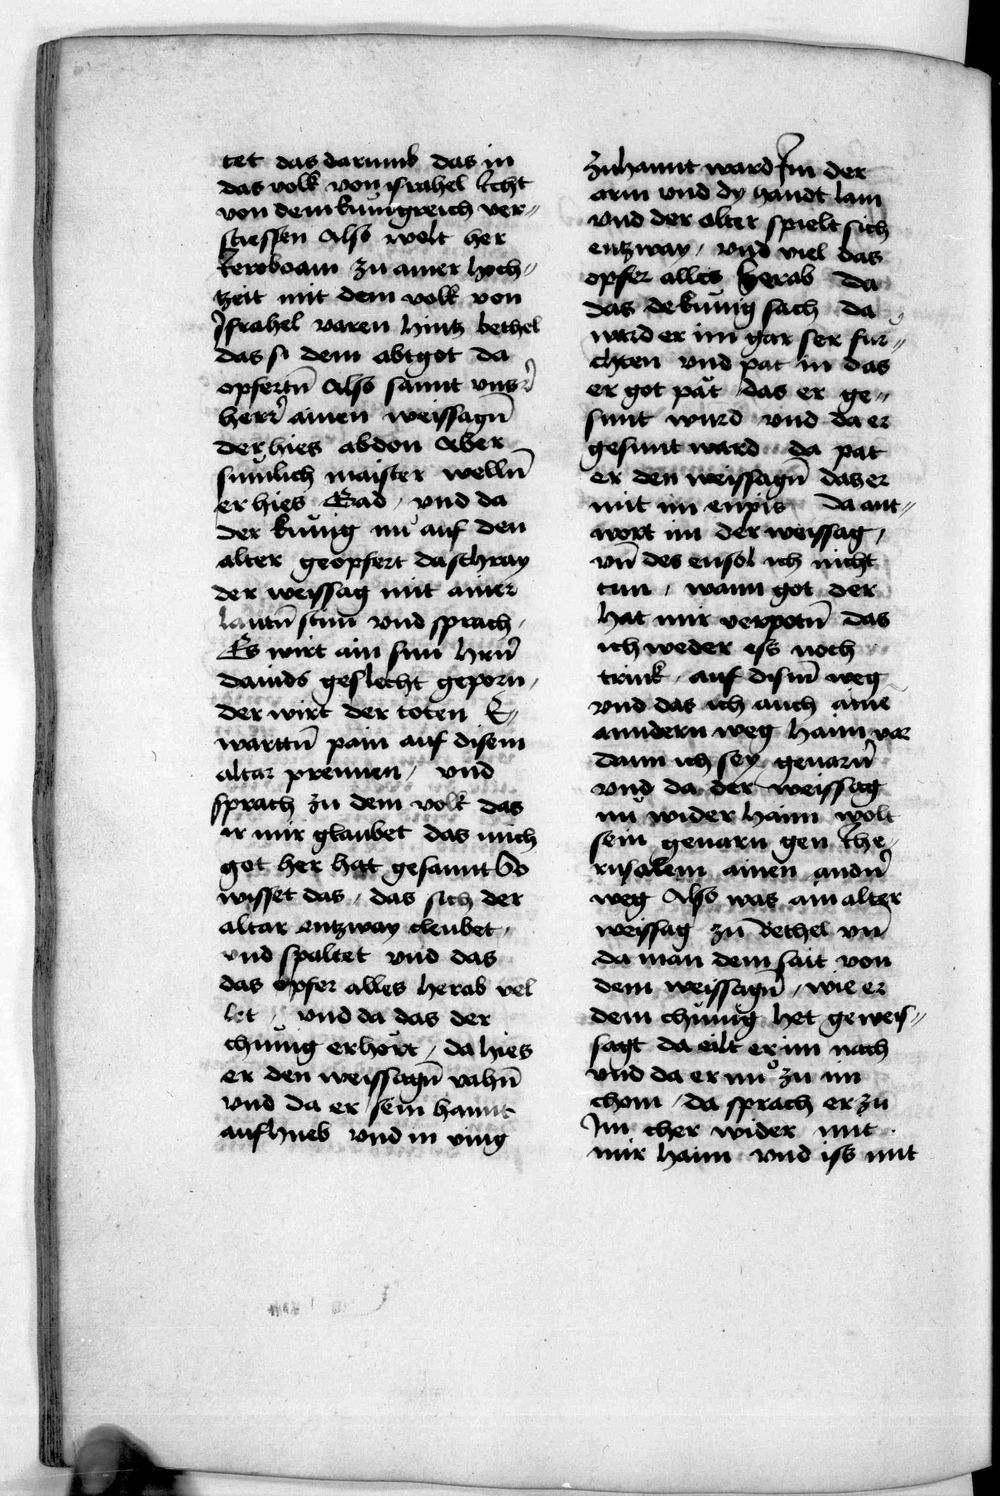 tet das darumb das in
das volk von israhel icht
von dem kunigreich ver„
stiessen Also wolt her
Ieroboam zu ainer hoch„
tzeit mit dem volk von
Israhel varen hintz bethel
das si dem abtgot da
opfertn̄ Also sannt vnsr̄
herr̄ ainen weissagn̄
der hies abdon Aber
sumlich maister welln̄
er hies Gad / vnd da
der kunig nu auf den
alter geopfert da schray
der weissag mit ainer
lautn̄ stim̄ vnd sprach /
Es wirt ain sun hrn̄
dauids geslecht geporn /
der wirt der toten E„
warttn̄ pain auf disem
altar prennen / vnd
sprach zu dem volk das
ir mir glaubet das mich
got her hat gesannt So
wisset das / das sich der
altar entzway cleubet /
vnd spaltet vnd das
das opfer alles herab vel
let / vnd da das der
chunig erhort / da hies
er den weissagn̄ vahn̄
vnd da er sein hannt
aufhueb vnd in ving
zuhannt ward Im der
arm vnd dy handt lam
vnd der alter spielt sich
entzway / vnd viel das
opfer alles herab da
das de kunig sach da
ward er im gar ser fur„
chten vnd pat in das
er got pat das er ge„
sunt wurd vnd da er
gesunt ward da pat
er den weissagn̄ das er
mit im enpis da ant„
wort im der weissag /
vn̄ des ensol ich nicht
tun / wann got der
hat mir verpotn̄ das
ich weder ess noch
trink / auf dism̄ weg
vnd das ich auch aine
anndern weg haim var
dann ich sey geuarn̄
vnd da der weissag
nu wider haim wolt
sein geuarn gen Ihe„
rusalem ainen andn̄
weg Also was ain alter
weissag zu Bethel vn̄
da man dem sait von
dem weissagn̄ / wie er
dem chunig het geweis„
sagt da eilt er im nach
vnd da er nu zu im
chom / da sprach er zu
Im cher wider mit
mir haim vnd iss mit